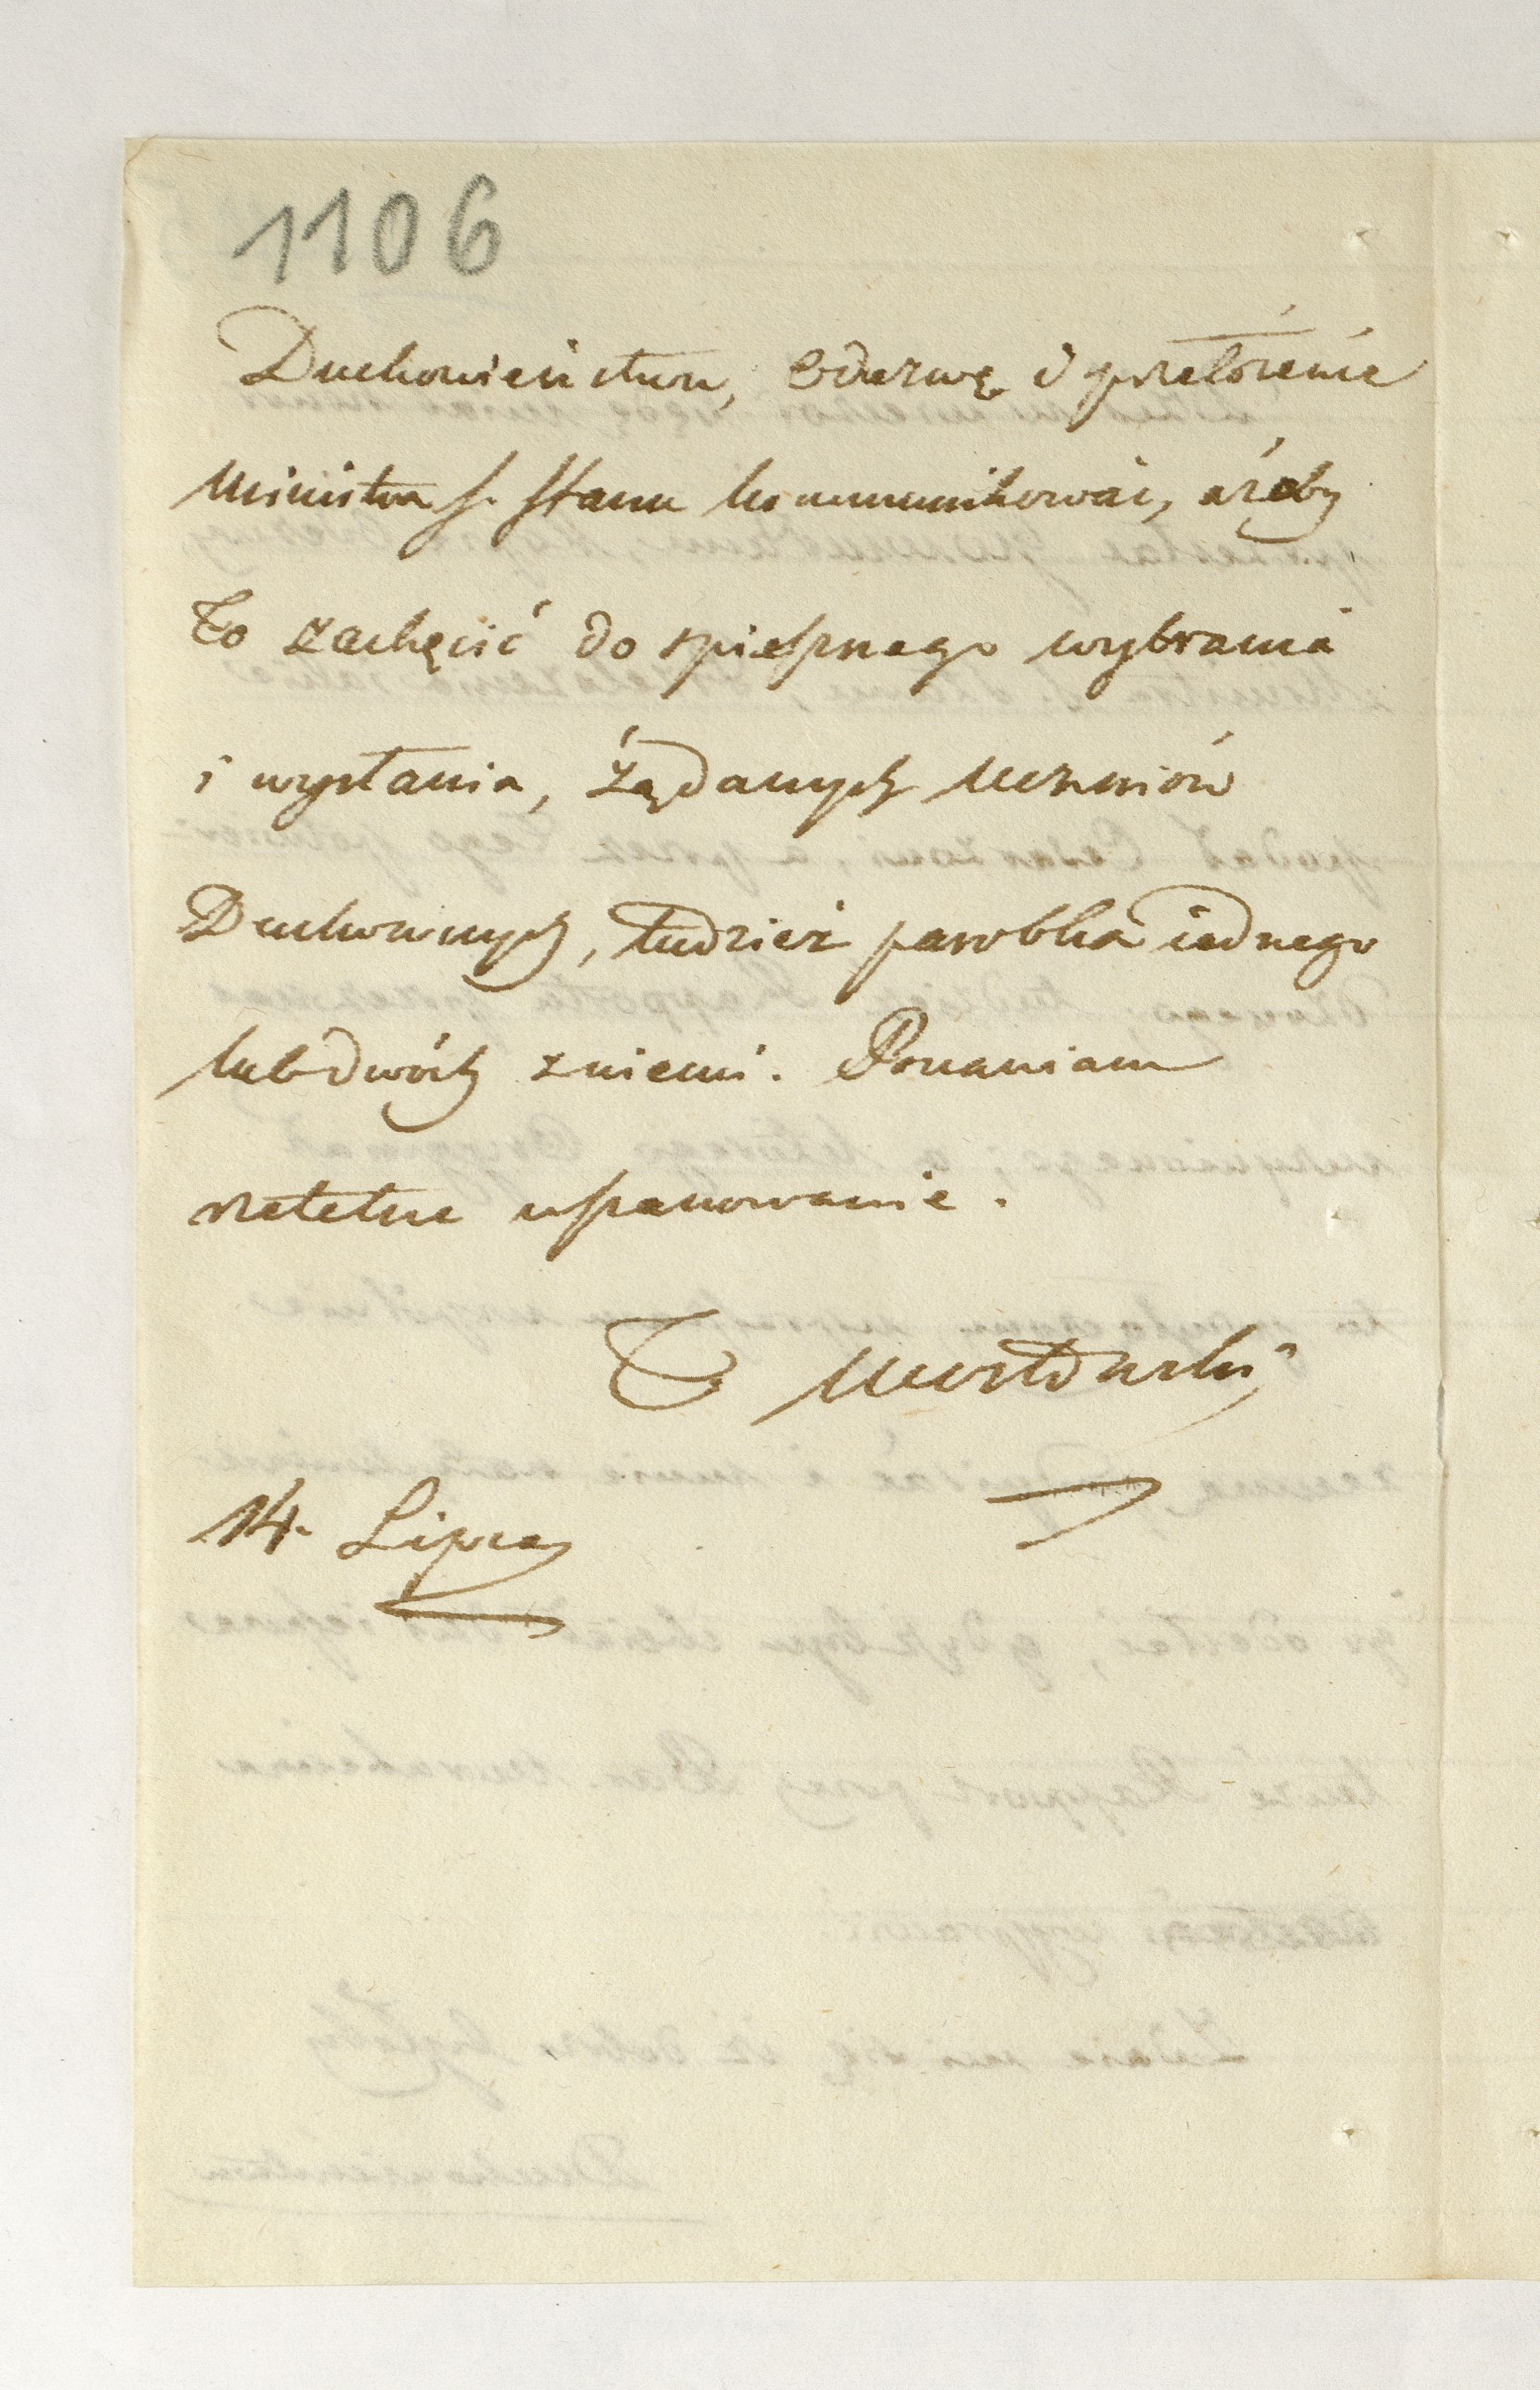 1106
Duchowieństwu, Odezwę i przełożenie
Ministra S. Stanu kommunikować, ażeby
to zachęcić do spiesznego wybrania
i wysłania, żądanych Uczniów
Duchownych, tudzież parobka iednego
lub dwóch z niemi. Ponawiam
rzetelne uszanowanie.
T Mostowski
14. Lipca